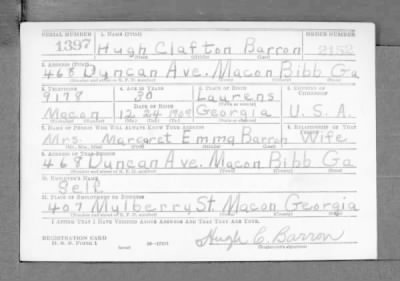 SERIAL NUMBER 1. NAME (Print) ORDER NUMBER
1397 Hugh Clafton Barron 2152
(First) (Middle) (Last)
2. ADDRESS (Print)
468 Duncan Ave. Macon Bibb Ga
3. TELEPHONE 4. AGE IN YEARS 5. PLACE OF BIRTH 6. COUNTRY OF CITIZENSHIP
9178 30 Laurens
DATE OF BIRTH
Macon 12 24 1909 Georgia U. S. A.
7. NAME OF PERSON WHO WILL ALWAYS KNOW YOUR ADDRESS 8. RELATIONSHIP OF THAT PERSON
Mrs. Margaret Emma Barron Wife
(Mr., Mrs., Miss) (First) (Middle) (Last)
9. ADDRESS OF THAT PERSON
468 Duncan Ave. Macon Bibb Ga
10. EMPLOYER'S NAME
Self
11. PLACE OF EMPLOYMENT OR BUSINESS
407 Mulberry St. Macon Georgia
I AFFIRM THAT I HAVE VERIFIED ABOVE ANSWERS AND THAT THEY ARE TRUE.
REGISTRATION CARD
D. S. S. FORM 1
Hugh C. Barron
(Registrant's signature)